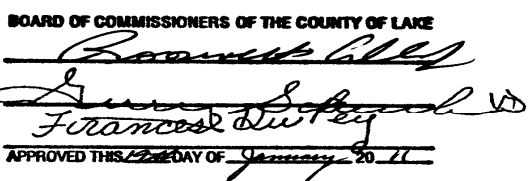 BOARD OF COMMISSIONERS OF THE COUNTY OF LAKE
Roosevelt Allen
Gerry Scheub
Frances DuPey
APPROVED THIS 19th DAY OF January 20 11